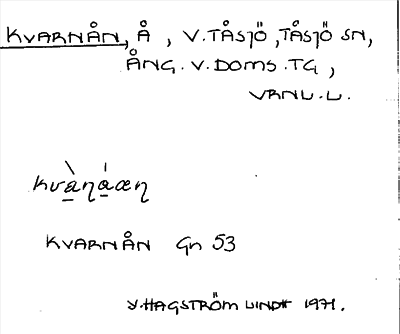 KVARNÅN, Å, V. TÅSJÖ, TÅSJÖ SN,
ÅNG. V. DOMS. TG,
VRNL. L.
kvàṇáæṇ
KVARNÅN Gn 53
V. HAGSTRÖM LINDH 1971.